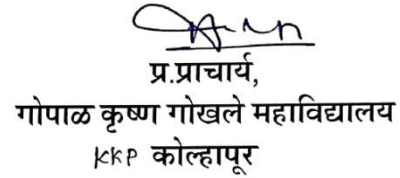 प्र.प्राचार्य,
गोपाळ कृष्ण गोखले महाविद्यालय
KKP कोल्हापूर